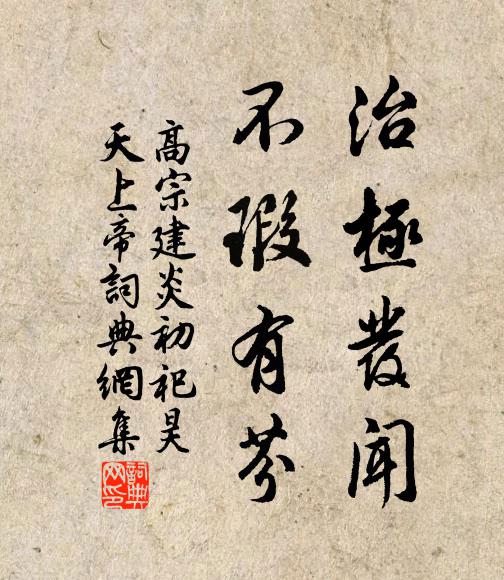 治極發聞
不瑕有芬
高宗建炎初祀昊
天上帝詞典網集
詞典
网印